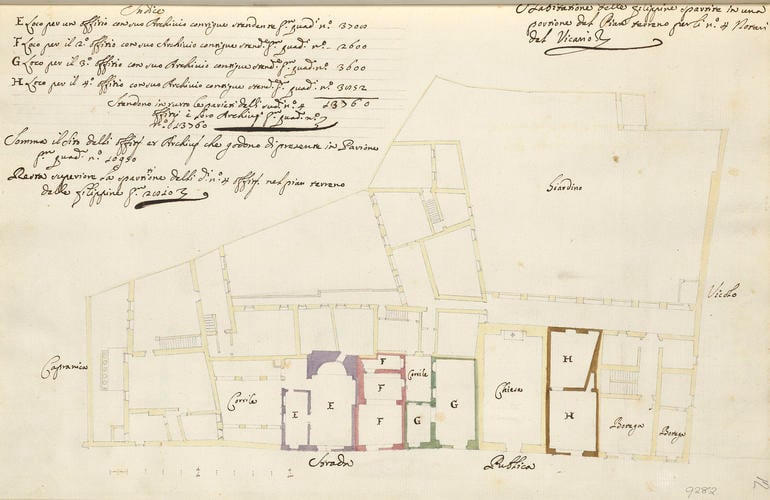 Indice
E Loco per un offitio con suo Archivio contigue stendente pmi quadi no 3700
F Loco per il 2o offitio con suo Archivio contigue stendte pmi quadi no 2600
G Loco per il 3o offitio con suo Archivio contigue stende pmi quadi no 3600
H Loco per il 4o offitio con suo Archivio contigue stende pmi quadi no
Stendono in tutto le partite delli sudti no 4 13760
offitij e loro Archivij pmi quadi no
no 13760
Somma il sito delli offitij et Archivij che godono di presente in Parione
pmi quadi no 10950
Resta superiore la spartitne delli di no 4 offitij nel pian terreno
delle filippine pmi
Habitatione delle filippine spartite in una
portione del Pian terreno per li no 4 Notari
del Vicario
Giardino
Vicolo
Capranica
Cortile
E
E
F
F
F
Cortile
G
G
Chiesa
H
H
Botega
Botega
Strada
Publica
12
9282